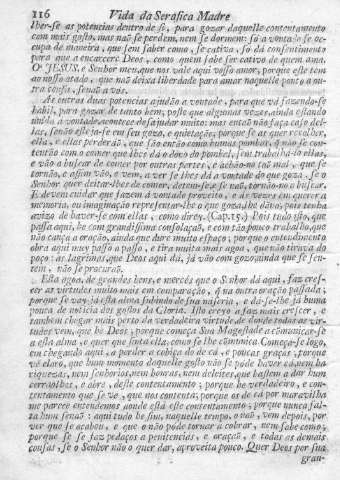 116 Vida da Serafica Madre
lher-se as potencias dentro de si, para gozar daquelle contentamento
com mais gosto, mas naõ se perdem, nem se dormem: só a vontade se oc-
cupa de maneira, que sem saber como, se cativa, só dá consentimento
para que a encarcere Deos, como quem sabe ser cativo de quem ama.
O' JESUS, e Senhor meu, que nos vale aqui vosso amor, porque este tem
ao nosso atado, que naõ deixa liberdade para amar naquelle ponto a ou-
tra cousa, senaõ a vós.
As outras duas potencias ajudaõ a vontade, para que vá fazendo-se
habil, para gozar de tanto bem, posto que algumas vezes, ainda estando
unida a vontade, acontece desajudar muito: mas entaõ naõ faça caso del-
las, senaõ esteja-se em seu gozo, e quietaçaõ; porque se as quer recolher,
ella, e ellas perderáõ, que saõ entaõ como humas pombas, q̃ naõ se con-
tentaõ com o comer que lhes dá o dono do pombal, sem trabalhal-o ellas,
e vaõ a buscar de comer por outras partes, e achaõ-no taõ mal, que se
tornaõ, e assim vaõ, e vem, a ver se lhes dá a vontade do que goza. Se o
Senhor quer deitar-lhes de comer, detem-se, e se naõ, tornaõ-no a buscar.
E devem cuidar que fazem à vontade proveito, e às vezes em querer a
memoria, ou imaginaçaõ representar-lhe o que goza, lhe dána, pois tenha
aviso de haver-se com ellas, como direy. (Cap. 15.) Pois tudo isto, que
passa aqui, he com grandissima consolaçaõ, e com taõ pouco trabalho, que
naõ cança a oraçaõ, ainda que dure muito espaço; porque o entendimento
obra aqui muy passo a passo, e tira muita mais agoa, que naõ tirava do
poço: as lagrimas, que Deos aqui dá, já vaõ com gozo, ainda que se sen-
tem, naõ se procuraõ.
Esta agoa, de grandes bens, e mercês que o Senhor dá aqui, faz cres-
cer as virtudes muito mais em comparaçaõ, q̃ na outra oraçaõ passada;
porque se vay já esta alma subindo de sua miseria, e dá-se-lhe já huma
pouca de noticia dos gostos da Gloria. Isto creyo a faz mais crescer, e
tambem chegar mais perto da verdadeira virtude de donde todas as vir-
tudes vem, que he Deos; porque começa Sua Magestade a cõmunicar-se
a esta alma, e quer que sinta ella, como se lhe cõmunica. Começa-se logo,
em chegando aqui, a perder a cobiça do de cá, e poucas graças; porque
vê claro, que hum momento daquelle gosto naõ se póde haver cá, nem ha
riquezas, nem senhorios, nem honras, nem deleites, que bastem a dar hum
cerraolhos, e abre, deste contentamento; porque he verdadeiro, e con-
tentamento que se vê, que nos contenta; porque os de cá por maravilha
me parece entendemos aonde está este contentamento; porque nunca fal-
ta hum senaõ: aqui tudo he sim, naquelle tempo, o naõ, vem depois, por
ver que se acabou, e que o naõ póde tornar a cobrar, nem sabe como;
porque se se faz pedaços a penitencias, e oraçaõ, e todas as demais
cousas, se o Senhor naõ o quer dar, aproveita pouco. Quer Deos por sua
gran-